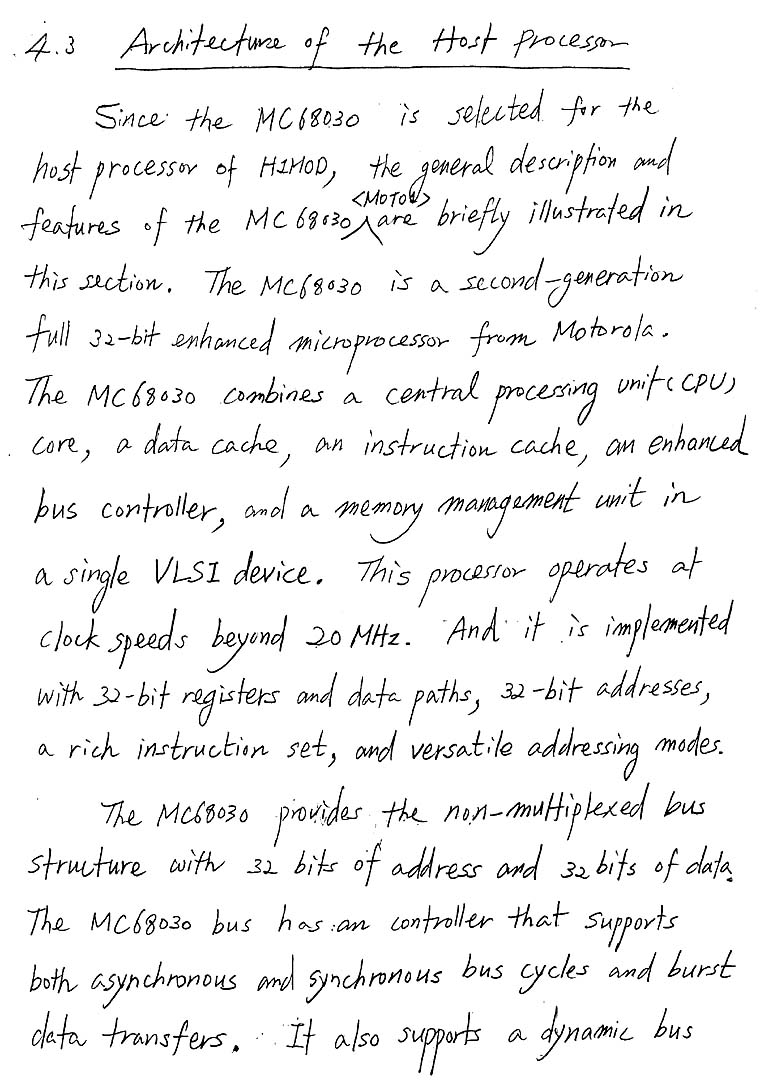 4.3 Architecture of the Host processor
Since the MC68030 is selected for the
host processor of HIMOD, the general description and
<MOTOW>
features of the MC68030 are briefly illustrated in
this section. The MC68030 is a second-generation
full 32-bit enhanced microprocessor from Motorola.
The MC68030 combines a central processing unit (CPU)
core, a data cache, an instruction cache, an enhanced
bus controller, and a memory management unit in
a single VLSI device. This processor operates at
clock speeds beyond 20 MHz. And it is implemented
with 32-bit registers and data paths, 32-bit addresses,
a rich instruction set, and versatile addressing modes.
The MC68030 provides the non-multiplexed bus
structure with 32 bits of address and 32 bits of data.
The MC68030 bus has an controller that supports
both asynchronous and synchronous bus cycles and burst
data transfers. It also supports a dynamic bus